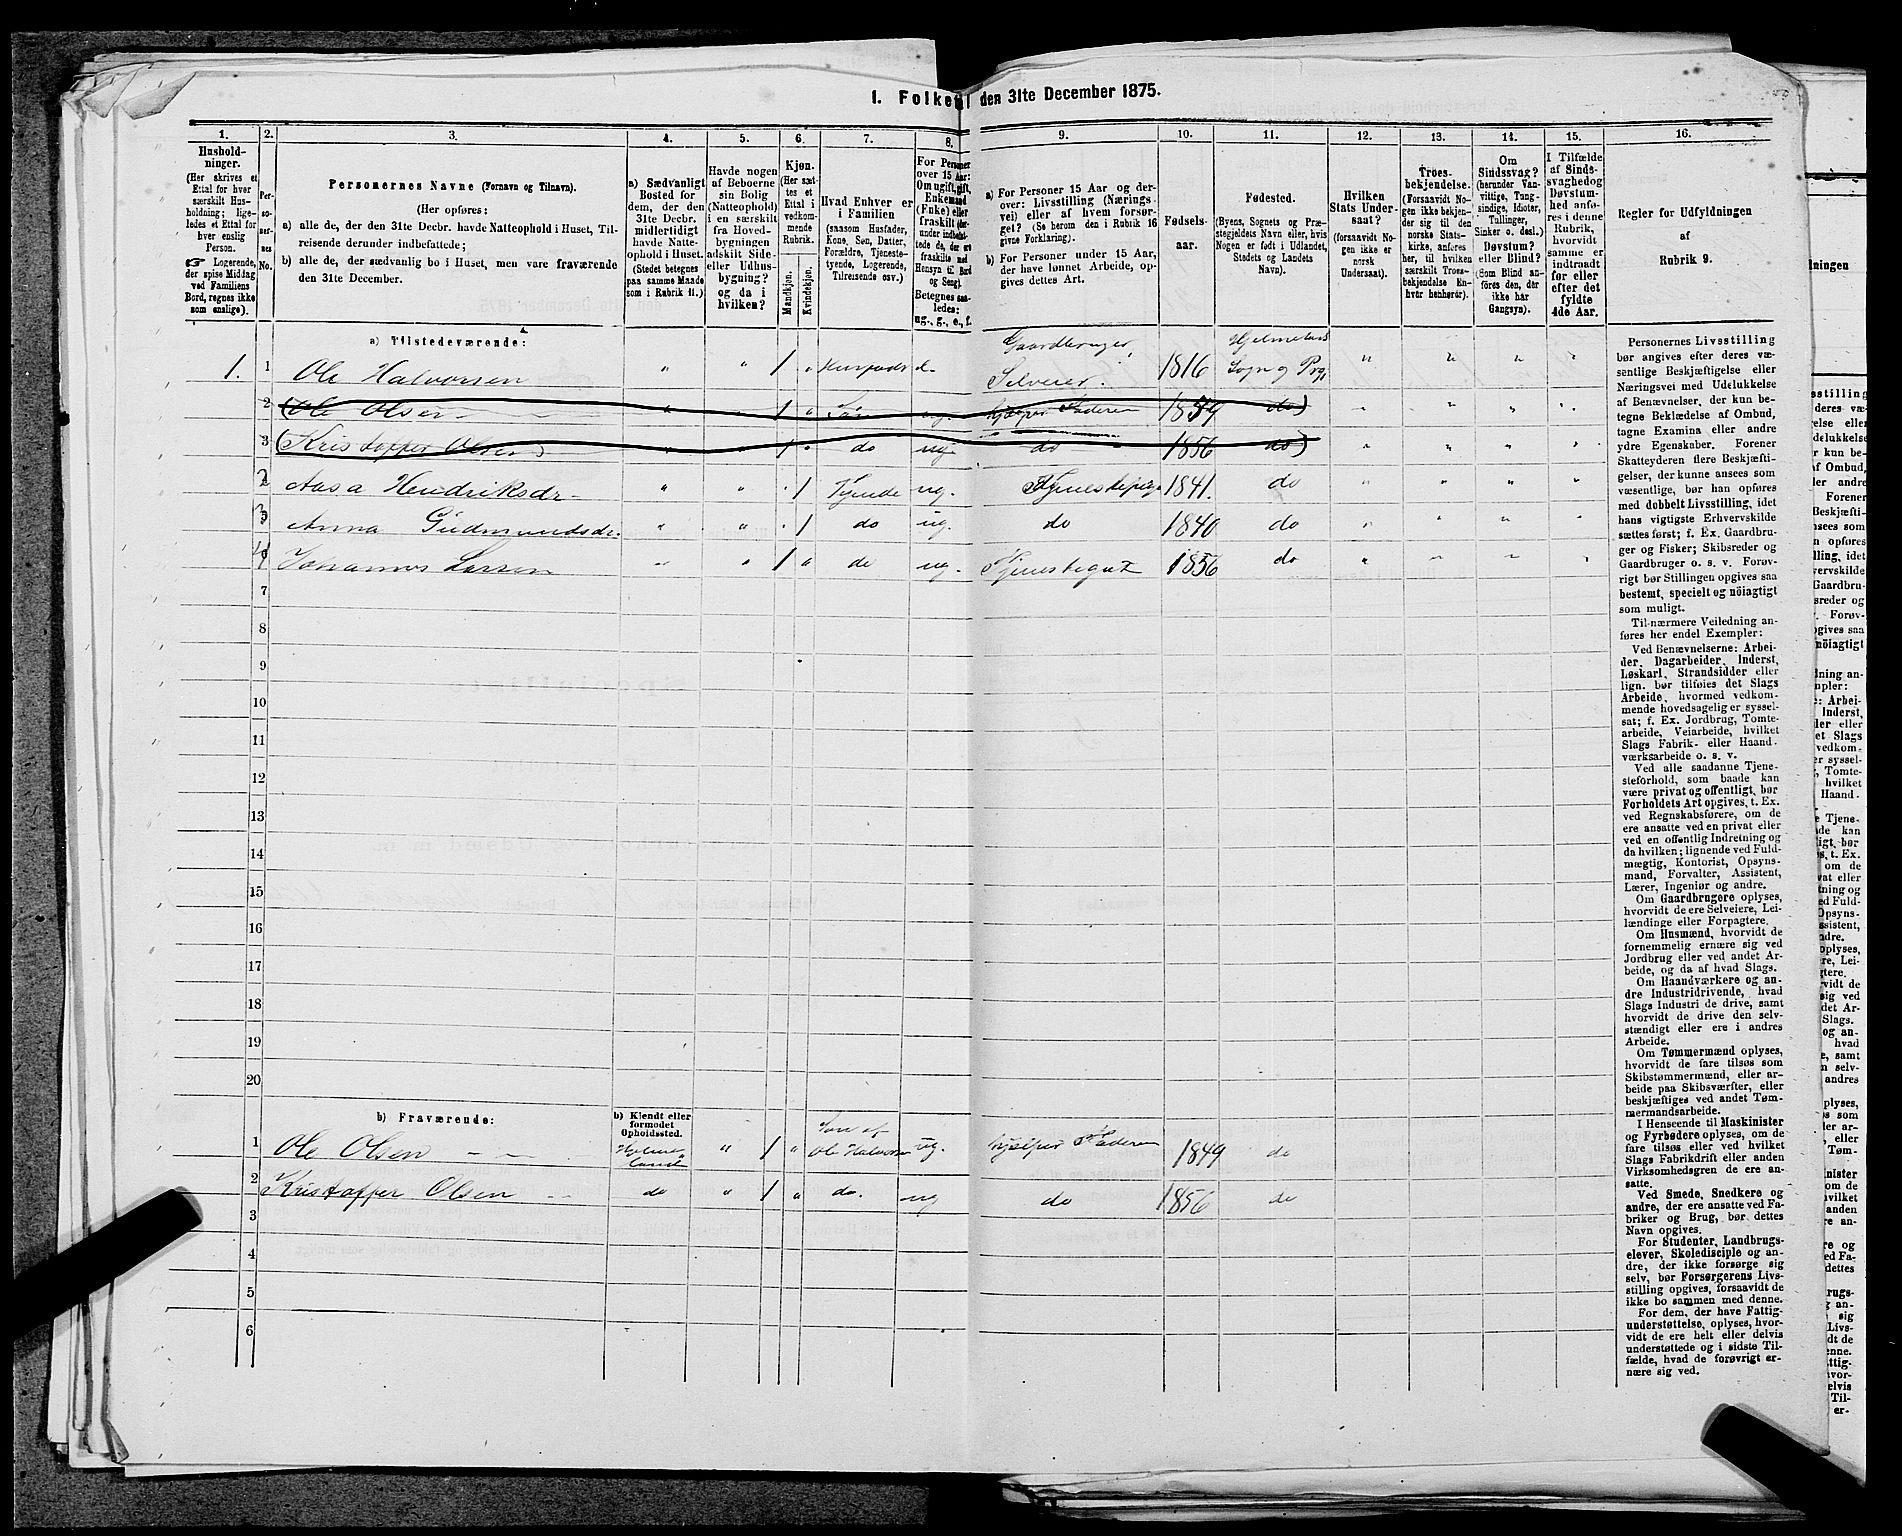 1. Folketal den 31te December 1875.
1. 2. 3. 4. 5. 6. 7. 8. 9. 10. 11. 12. 13. 14. 15. 16.
Hushold-
ninger.
(Her skrives et
Ettal for hver
særskilt Hus-
holdning; lige-
ledes et Ettal for
hver enslig
Person.
☞ Logerende,
der spise Middag
ved Familiens
Bord, regnes ikke
som enslige).
Per-
so-
ner-
nes
No.
Personernes Navne (Fornavn og Tilnavn).
(Her opføres:
a) alle de, der den 31te Decbr. havde Natteophold i Huset, Til-
reisende derunder indbefattede;
b) alle de, der sædvanlig bo i Huset, men vare fraværende
den 31te December.
a) Sædvanligt
Bosted for
dem, der den
31te Decbr.
midlertidigt
havde Natte-
ophold i Huset.
(Stedet betegnes
paa samme Maade
som i Rubrik 11.)
Havde nogen
af Beboerne
sin Bolig
(Natteophold)
i en særskilt
fra Hoved-
bygningen
adskilt Side-
eller Udhus-
bygning?
og da i
hvilken?
Kjøn.
(Her sæt-
tes et
Ettal i
vedkom-
mende
Rubrik.
Mandkjøn.
Kvindekjøn.
Hvad Enhver er
i Familien
(saasom Husfader,
Kone, Søn, Datter,
Forældre, Tjeneste-
tyende, Logerende,
Tilreisende osv.)
For Personer
over 15 Aar:
Om ugift, gift,
Enkemand
(Enke) eller
fraskilt (der-
under indbefat-
tede de, der ere
fraskilte med
Hensyn til Bord
og Seng).
Betegnes saa-
ledes:
ug., g., e., f.
a) For Personer 15 Aar og der-
over: Livsstilling (Nærings-
vei) eller af hvem forsør-
get? (Se herom den i Rubrik 16
givne Forklaring).
b) For Personer under 15 Aar,
der have lønnet Arbeide, op-
gives dettes Art.
Fødsels-
aar.
Fødested.
(Byens, Sognets og Præ-
stegjeldets Navn eller, hvis
Nogen er født i Udlandet,
Stedets og Landets
Navn).
Hvilken
Stats Under-
saat?
(forsaavidt No-
gen ikke er
norsk
Undersaat).
Troes-
bekjendelse.
(Forsaavidt No-
gen ikke bekjen-
der sig til den
norske Stats-
kirke, anføres
her, til hvilken
særskilt Troes-
bekjendelse En-
hver henhører).
Om
Sindssvag?
(herunder Van-
vittige, Tung-
sindige, Idioter,
Tullinger,
Sinker o. desl.)
Døvstum?
eller Blind?
(Som Blind an-
føres den, der
ikke har
Gangsyn).
I Tilfælde
af Sinds-
svaghed og
Døvstum-
hed anfø-
res i denne
Rubrik,
hvorvidt
samme er
indtraadt
før eller
efter det
fyldte
4de Aar.
Regler for Udfyldningen
af
Rubrik 9.
a) Tilstedeværende:
1. 1 Ole Halvorsen " " 1 " Husfader e. Gaardbruger, Selveier. 1816 Hjelmelands Sogn og Prgj " " " "
2 (Ole Olsen " " 1 " Søn ug. hjælper Faderen 1849 do) " " " "
3 (Kristoffer Olsen) " " 1 " do ug do 1856 do) " " " "
2 Aasa Hendriksdr " " " 1 Tjende ug. Tjenestepige 1841. do " " " "
3 Anna Gudmundsdr. " " " 1 do ug. do 1840 do " " " "
4 Johannes Larsen " " 1 " do ug. Tjenestegut 1856 do " " " "
7
8
9
10
11
12
13
14
15
16
17
18
19
20
b) Fraværende:
b) Kjendt eller
formodet
Opholdssted.
1 Ole Olsen Holme- land " 1 " Søn af Ole Halvorsen ug. hjælper Faderen 1849 do
2 Kristoffer Olsen do " 1 " do. ug do 1856 do
3
4
5
6
Personernes Livsstilling
bør angives efter deres væ-
sentlige Beskjæftigelse eller
Næringsvei med Udelukkelse
af Benævnelser, der kun be-
tegne Beklædelse af Ombud,
tagne Examina eller andre
ydre Egenskaber. Forener
Skatteyderen flere Beskjæfti-
gelser, der kunne ansees som
væsentlige, bør han opføres
med dobbelt Livsstilling, idet
hans vigtigste Erhvervskilde
sættes først; f. Ex. Gaardbru-
ger og Fisker; Skibsreder og
Gaardbruger o. s. v. Forøv-
rigt bør Stillingen opgives saa
bestemt, specielt og nöiagtigt
som muligt.
Til nærmere Veiledning an-
føres her endel Exempler:
Ved Benævnelserne: Arbei-
der, Dagarbeider, Inderst,
Løskarl, Strandsidder eller
lign. bør tilføies det Slags
Arbeide, hvormed vedkom-
mende hovedsagelig er syssel-
sat; f. Ex. Jordbrug, Tomte-
arbeide, Veiarbeide, hvilket
Slags Fabrik- eller Haand-
værksarbeide o. s. v.
Ved alle saadanne Tjene-
steforhold, som baade kan
være privat og offentligt, bør
Forholdets Art opgives, t. Ex.
ved Regnskabsførere, om de
ere ansatte ved en privat eller
ved en offentlig Indretning og
da hvilken; lignende ved Fuld-
mægtig, Kontorist, Opsyns-
mand, Forvalter, Assistent,
Lærer, Ingeniør og andre.
Om Gaardbrugere oplyses,
hvorvidt de ere Selveiere, Lei-
lændinge eller Forpagtere.
Om Husmænd, hvorvidt de
fornemmelig ernære sig ved
Jordbrug eller ved andet Ar-
beide, og da af hvad Slags.
Om Haandværkere og an-
dre Industridrivende, hvad
Slags Industri de drive, samt
hvorvidt de drive den selv-
stændigt eller ere i andres
Arbeide.
Om Tømmermænd oplyses,
hvorvidt de fare tilsøs som
Skibstømmermænd, eller ar-
beide paa Skibsværfter, eller
beskjæftiges ved andet Tøm-
mermandsarbeide.
I Henseende til Maskinister
og Fyrbødere oplyses, om de
fare tilsøs eller ved hvilket
Slags Fabrikdrift eller anden
Virksomhedsgren de ere an-
satte.
Ved Smede, Snedkere og
andre, der ere ansatte ved Fa-
briker og Brug, bør dettes
Navn opgives.
For Studenter, Landbrugs-
elever, Skoledisciple og an-
dre, der ikke forsørge sig
selv, bør Forsørgerens Livs-
stilling opgives, forsaavidt de
ikke bo sammen med denne.
For dem, der have Fattig-
understøttelse, oplyses, hvor-
vidt de ere helt eller delvis
understøttede og i sidste Til-
fælde, hvad de forøvrigt er-
nære sig ved.